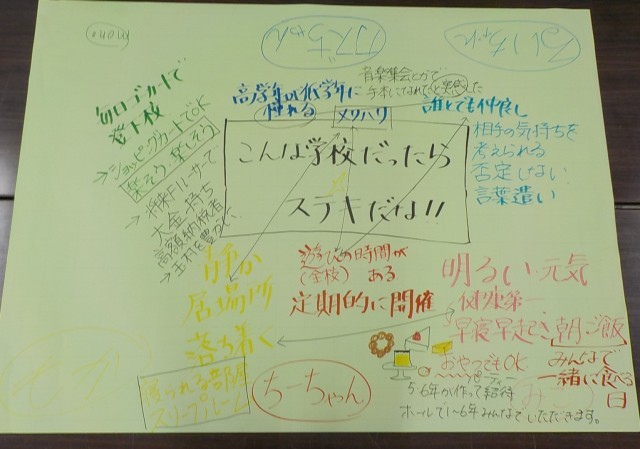 カズちゃん
るいちゃん
音楽集会とかで
手本になれて
高学年は低学年に
憧れる
メリハリ
誰とでも仲良し
相手の気持ちを
考えられる
否定しない
言葉遣い
毎日デカートで
登下校
→ショッピングカートでOK
楽そう 楽しそう
→将来F1レーサーで
大金持ち
高額納税者
こんな学校だったら
ステキだな!!
静か
居場所
落ち着く
遊びの時間が
(全校) ある
定期的に開催
明るい元気
健康第一
早寝早起き朝ご飯
おやつもOK
みんなで
一緒に食べる
日
5・6年が作って招待
ホールで1〜6年みんなでいただきます。
ちーちゃん
スリープルーム